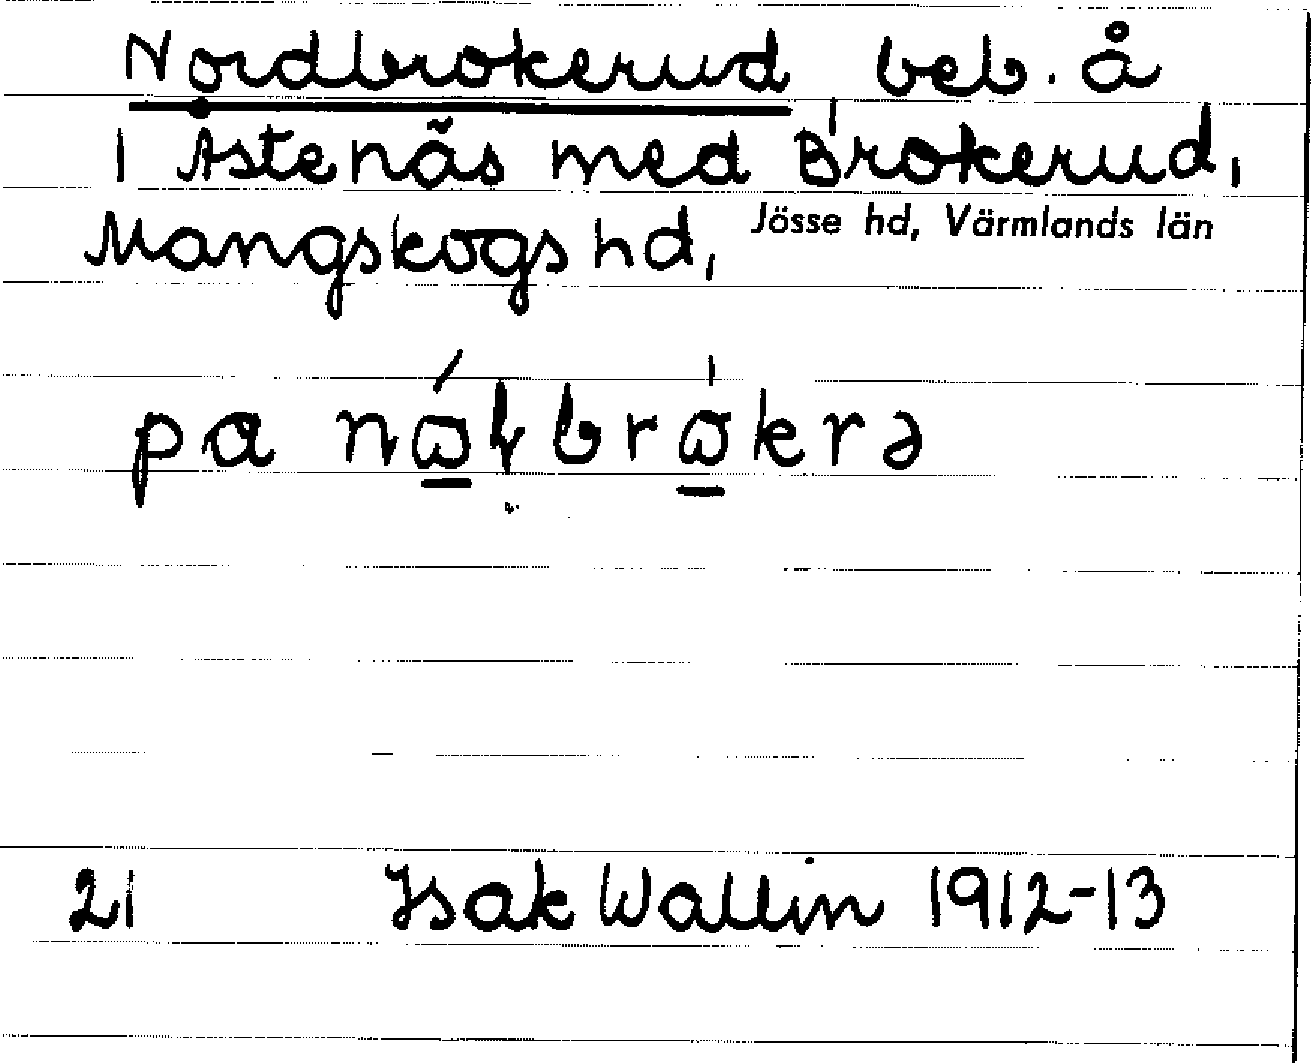 Nordbrokerud beb. å
1 Åstenäs med Brokerud,
Mangskogs hd, Jösse hd, Värmlands län
pa
21 Isak Wallin 1912-13